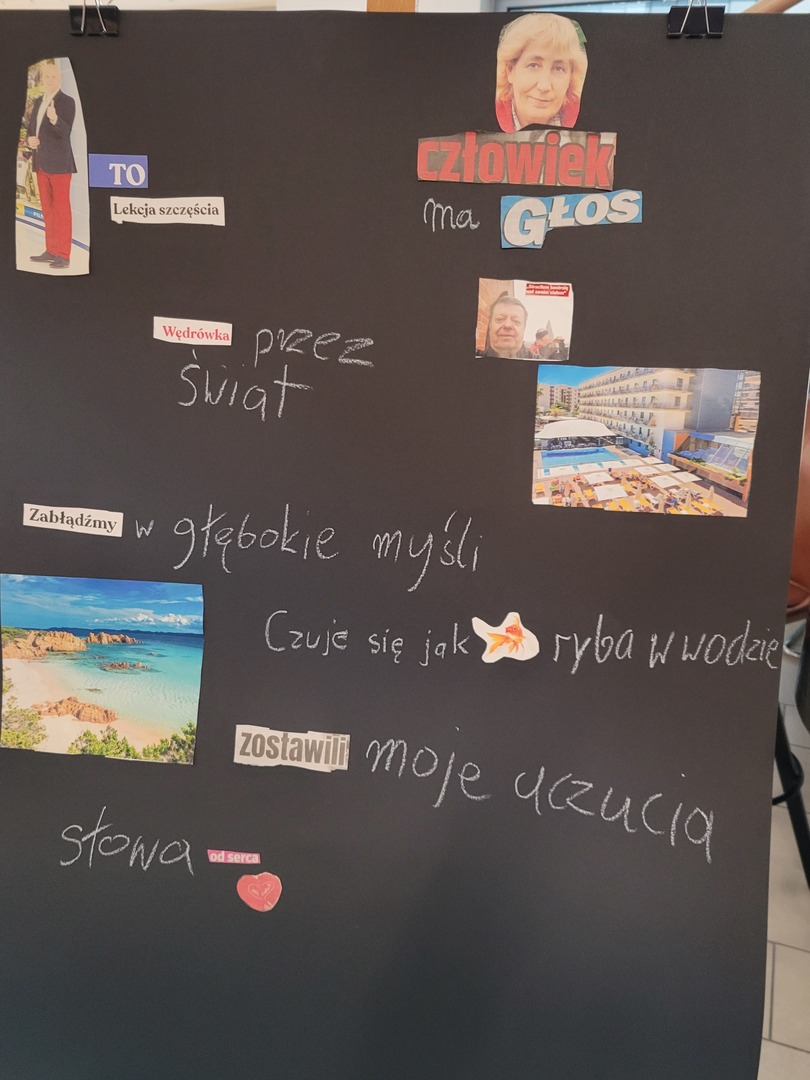 człowiek
TO
Lekcja szczęścia
ma GŁOS
"Straciłem kontrolę
nad swoim ciałem"
Wędrówka przez
świat
Zabłądźmy w głębokie myśli
Czuje się jak ryba w wodzie
zostawili moje uczucia
słowa od serca